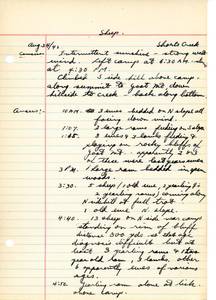 Sheep.
Aug 28/42 Sheets Creek
Intermittent sunshine - strong west
wind. Left camp at 6:30 A.M.
at 6:30 P.M.
Climbed 3 side hills above camp.
along summit to goat mt. down
hillside to creek & back along bottom
10 A.M. 3 ewes bedded on N slope all
facing down wind.
1:07. 3 large rams feeding on S slope
1:25. 3 ewes & 2 lambs feeding &
playing on rocky bluff
of goat mt.
of these were last years ewes
3 P.M. 1 large ram bedded in open
woods.
3:30. 5 sheep, 1 old ewe, 2 yearling &
2 yearling rams, running along
N sidehill at full trot.
1 old ewe N slope.
4:40. 13 sheep on N side near camp
standing on rim of bluff
distance 300 yds. so that
diagnosis difficult but at
least 3 yearling rams & two
year old ram, 2 lambs, other
6 apparently ewes of various
ages.
4:52 Yearling ram alone at lick
above camp.